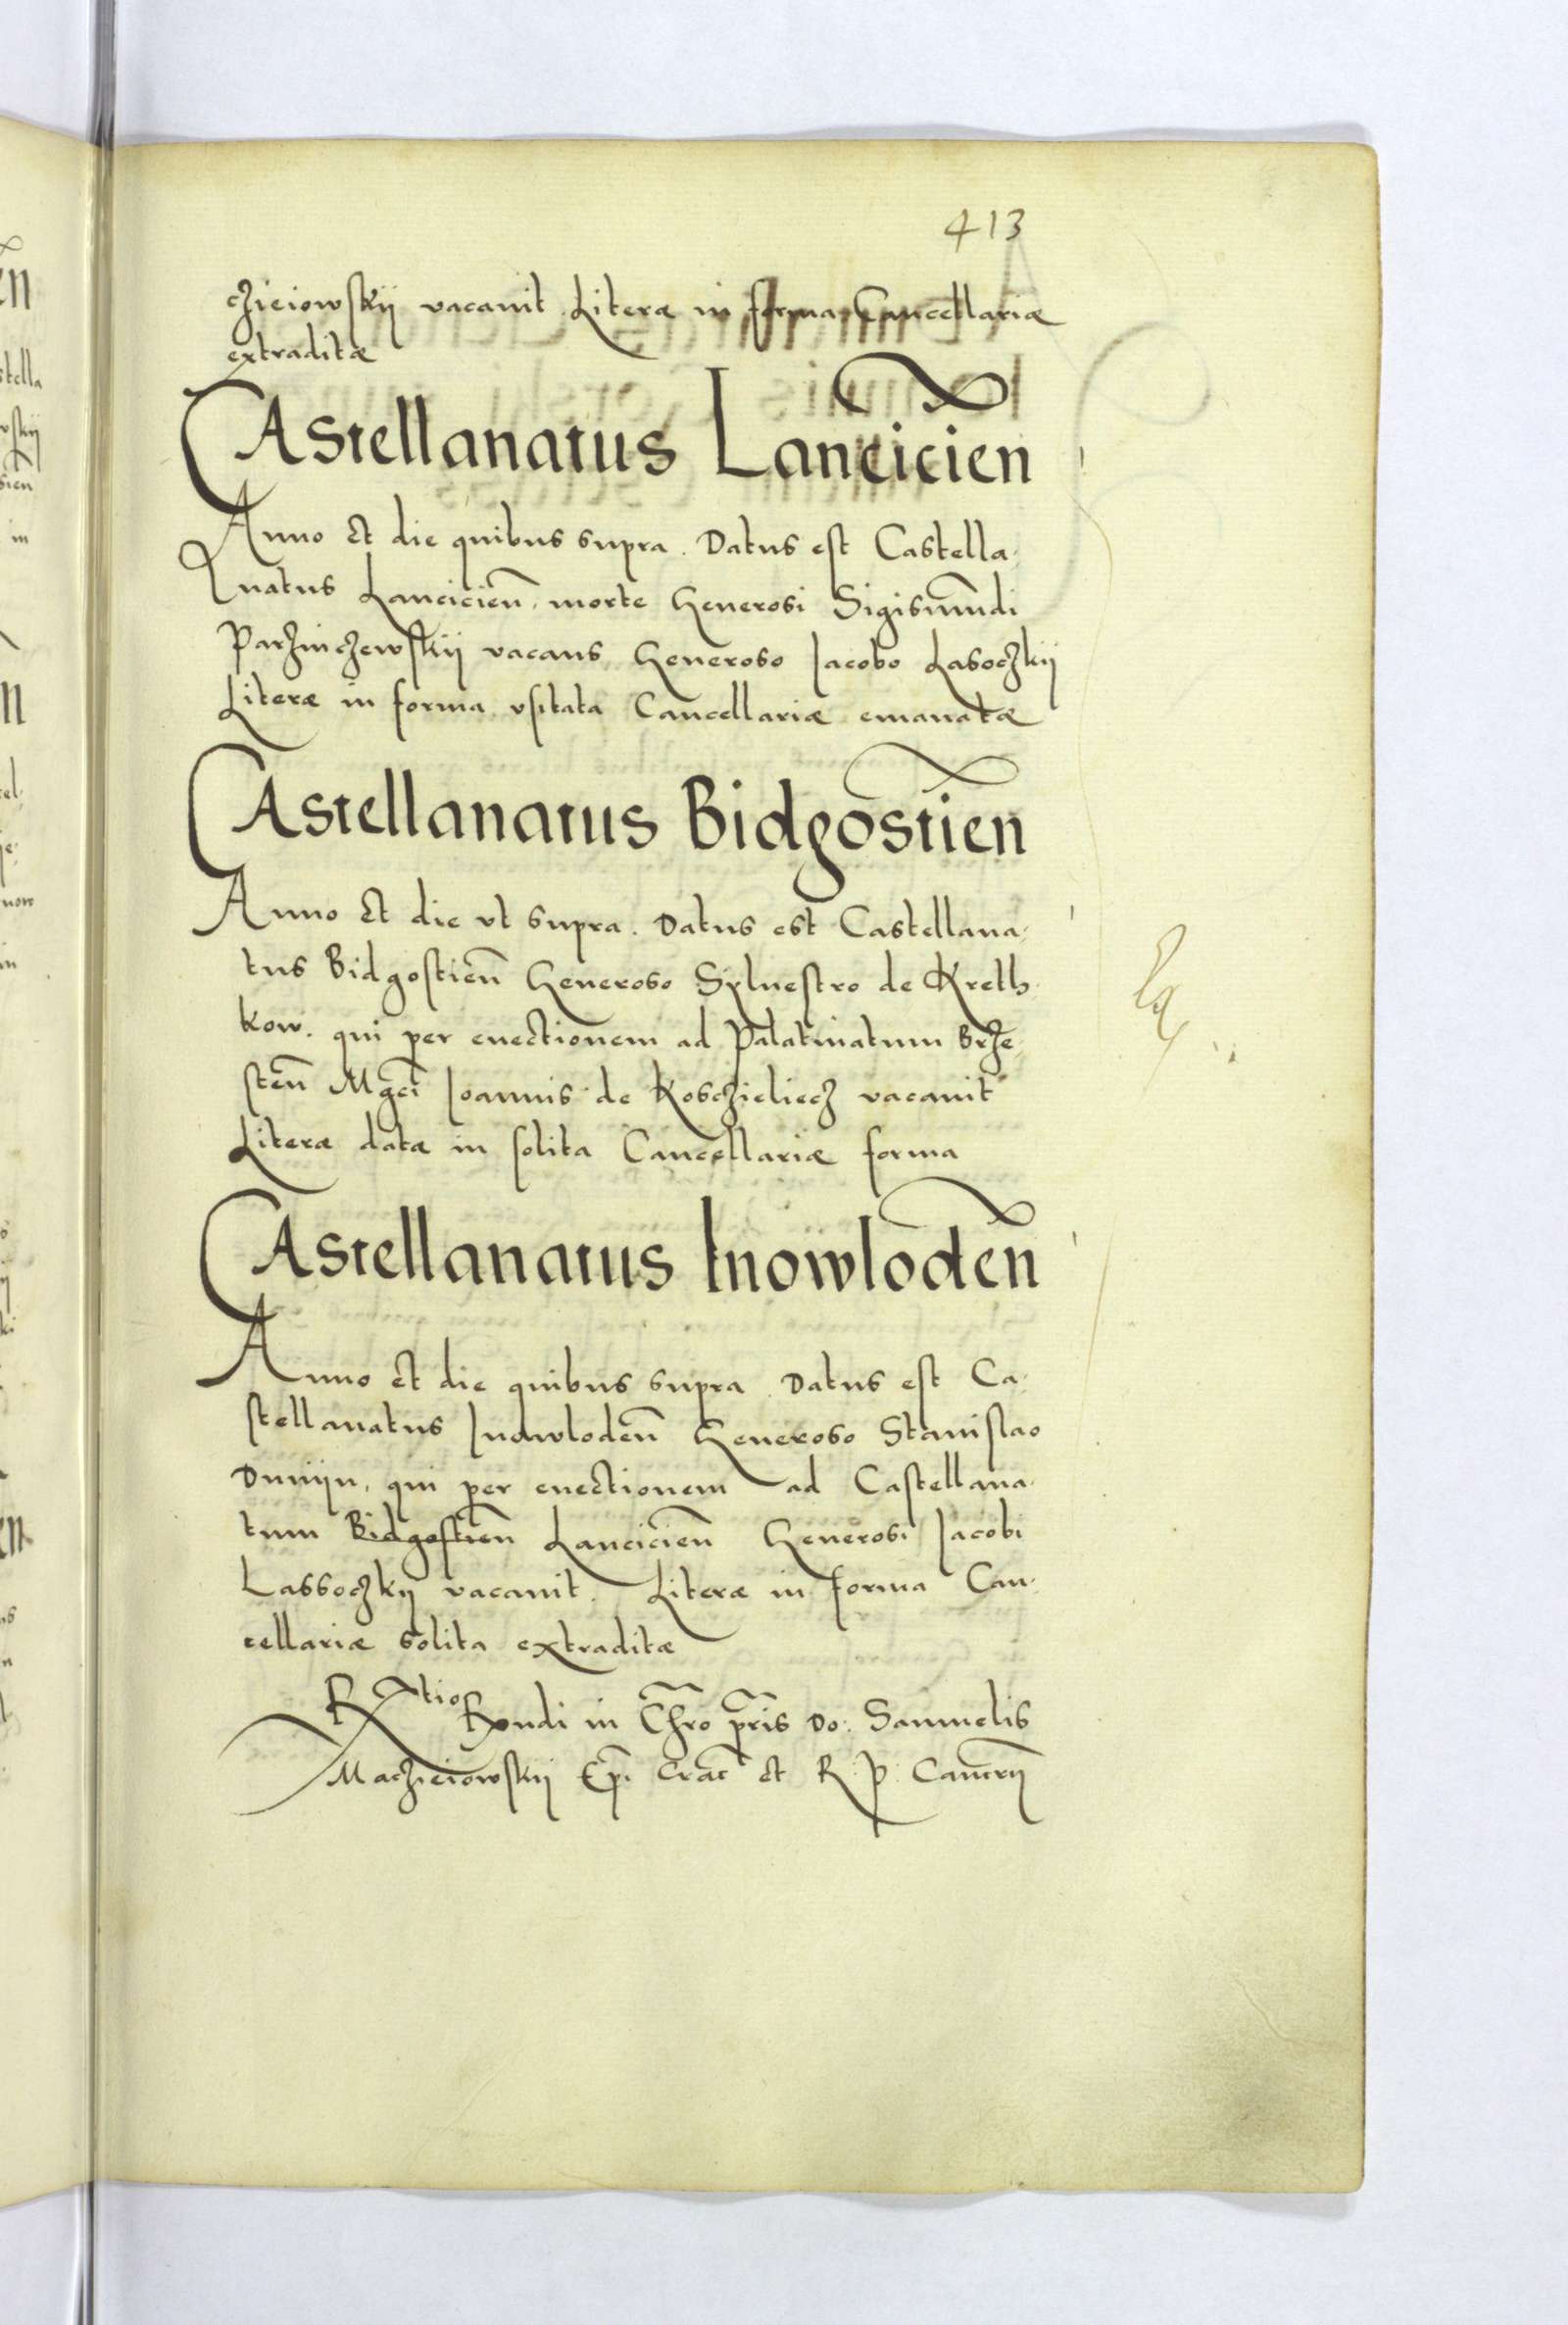 413
cżieiowskij vacauit Literæ in forma Cancellariæ
extraditæ
Castellanatus Lancicien̄
Anno et die quibus supra. Datus est Castella-
natus Lancicien̄, morte Generosi Sigismūdi
Parzinczewskij vacans Generoso Jacobo Lasoczkij
Literæ in forma vsitata Cancellariæ emanatæ
Castellanatus Bidgostien̄
Anno et die vt supra. Datus est Castellana-
tus Bidgostien̄ Generoso Syluestro de Kreth-
kow. qui per euectionem ad Palatinatum Brze-
sten̄ Mgcī Joannis de Kosczieliecz vacauit
Literæ datæ in solita Cancellariæ forma
Castellanatus Inowloden̄
Anno et die quibus supra. Datus est Ca-
stellanatus Inowloden̄ Generoso Stanislao
Duniin, qui per euectionem ad Castellana-
tum Bidgostien̄ Lancicien̄ Generosi Jacobi
Lassoczkij vacauit. Literæ in forma Can-
cellariæ solita extraditæ
R̄tio Rx̄ndi in Chr̄o pr̄is Do: Samuelis
Maczieiowskij Ep̄i Crac̄ et R: P: Canc̄rij